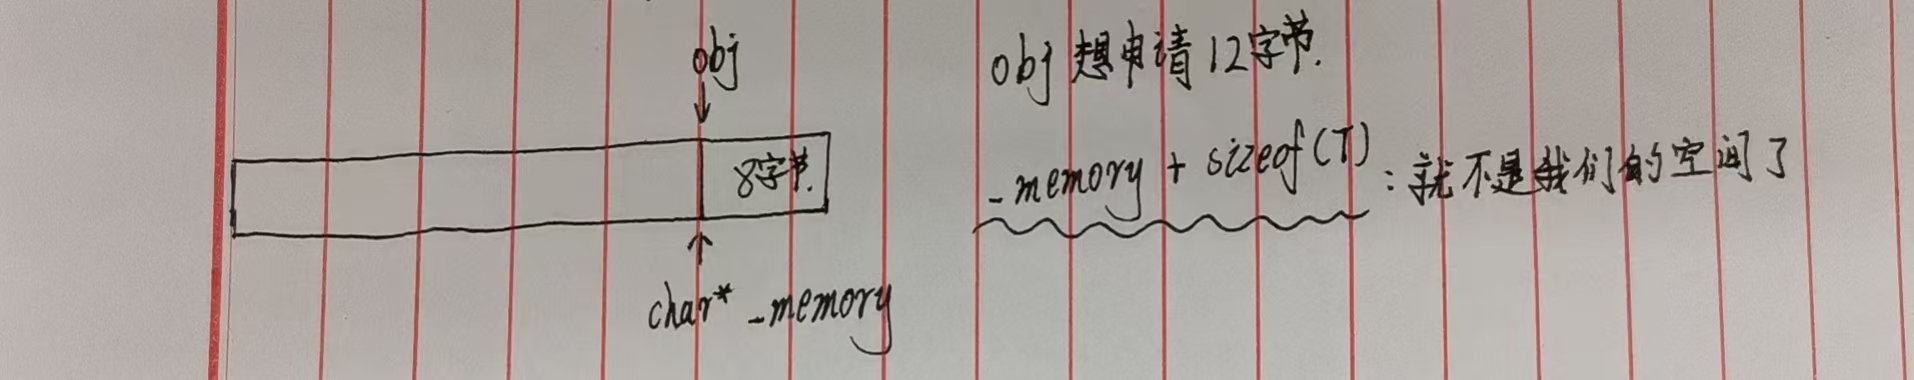 obj
8字节.
char* _memory
obj 想申请12字节.
_memory + sizeof(T) : 就不是我们的空间了